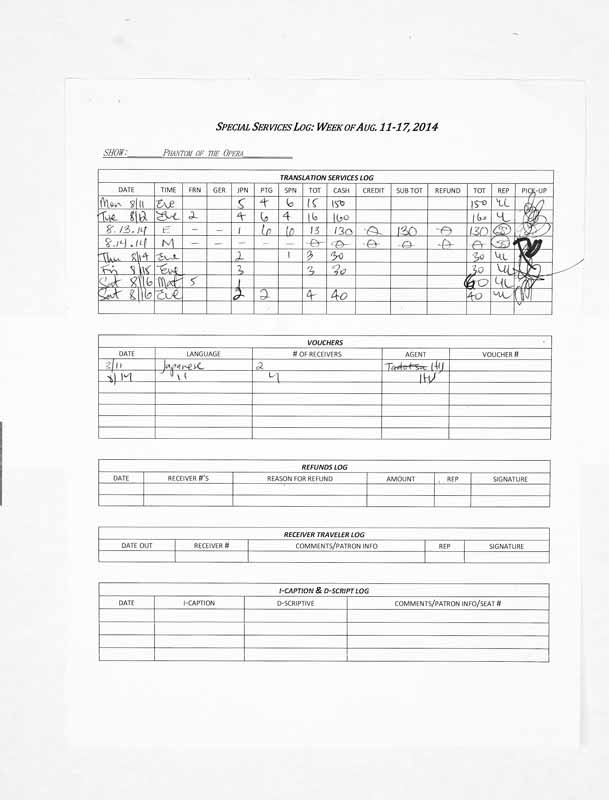 SPECIAL SERVICES LOG: WEEK OF AUG. 11-17, 2014
SHOW: PHANTOM OF THE OPERA
TRANSLATION SERVICES LOG
DATE TIME FRN GER JPN PTG SPN TOT CASH CREDIT SUB TOT REFUND TOT REP PICK-UP
Mon 8/11 Eve 5 4 6 15 150 150 YL
Tue 8/12 Eve 2 4 6 4 16 160 160 YL
8.13.14 E – – 1 6 6 13 130 0 130 0 130
8.14.14 M – – – – – 0 0 0 0 0 0
Thu 8/14 Eve 2 1 3 30 30 YL
Fri 8/15 Eve 3 3 30 30 YL
Sat 8/16 Mat 5 1 60 YL
Sat 8/16 Eve 2 2 4 40 40 YL
VOUCHERS
DATE LANGUAGE # OF RECEIVERS AGENT VOUCHER #
8/11 Japanese 2
8/14 " 4
REFUNDS LOG
DATE RECEIVER #'S REASON FOR REFUND AMOUNT REP SIGNATURE
RECEIVER TRAVELER LOG
DATE OUT RECEIVER # COMMENTS/PATRON INFO REP SIGNATURE
I-CAPTION & D-SCRIPT LOG
DATE I-CAPTION D-SCRIPTIVE COMMENTS/PATRON INFO/SEAT #